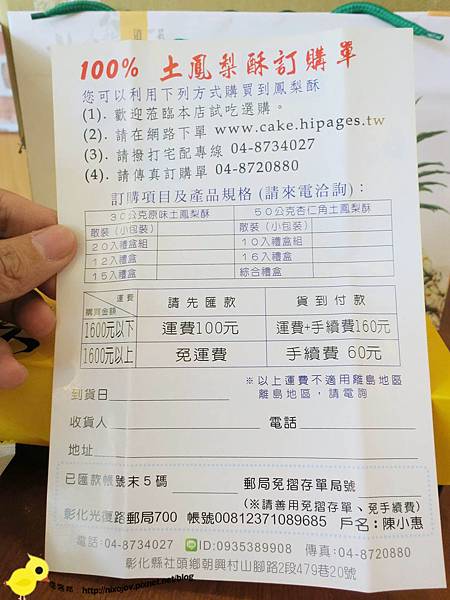 100% 土鳳梨酥訂購單
您可以利用下列方式購買到鳳梨酥
(1). 歡迎蒞臨本店試吃選購。
(2). 請在網路下單 www.cake.hipages.tw
(3). 請撥打宅配專線 04-8734027
(4). 請傳真訂購單 04-8720880
訂購項目及產品規格 (請來電洽詢):
30公克原味土鳳梨酥 50公克杏仁角土鳳梨酥
散裝（小包裝） 散裝（小包裝）
20入禮盒組 10入禮盒組
12入禮盒 16入禮盒
15入禮盒 綜合禮盒
運費 購買金額 請先匯款 貨到付款
1600元以下 運費100元 運費+手續費160元
1600元以上 免運費 手續費 60元
※以上運費不適用離島地區
離島地區，請電詢
到貨日
收貨人 電話
地址
已匯款帳號末5碼 郵局免摺存單局號
(※請善用免摺存單、免手續費)
彰化光復路郵局700 帳號00812371089685 戶名:陳小惠
電話:04-8734027 LINE ID:0935389908 傳真:04-8720880
彰化縣社頭鄉朝興村山腳路2段479巷20號
http://nixojov.pixnet.net/blog